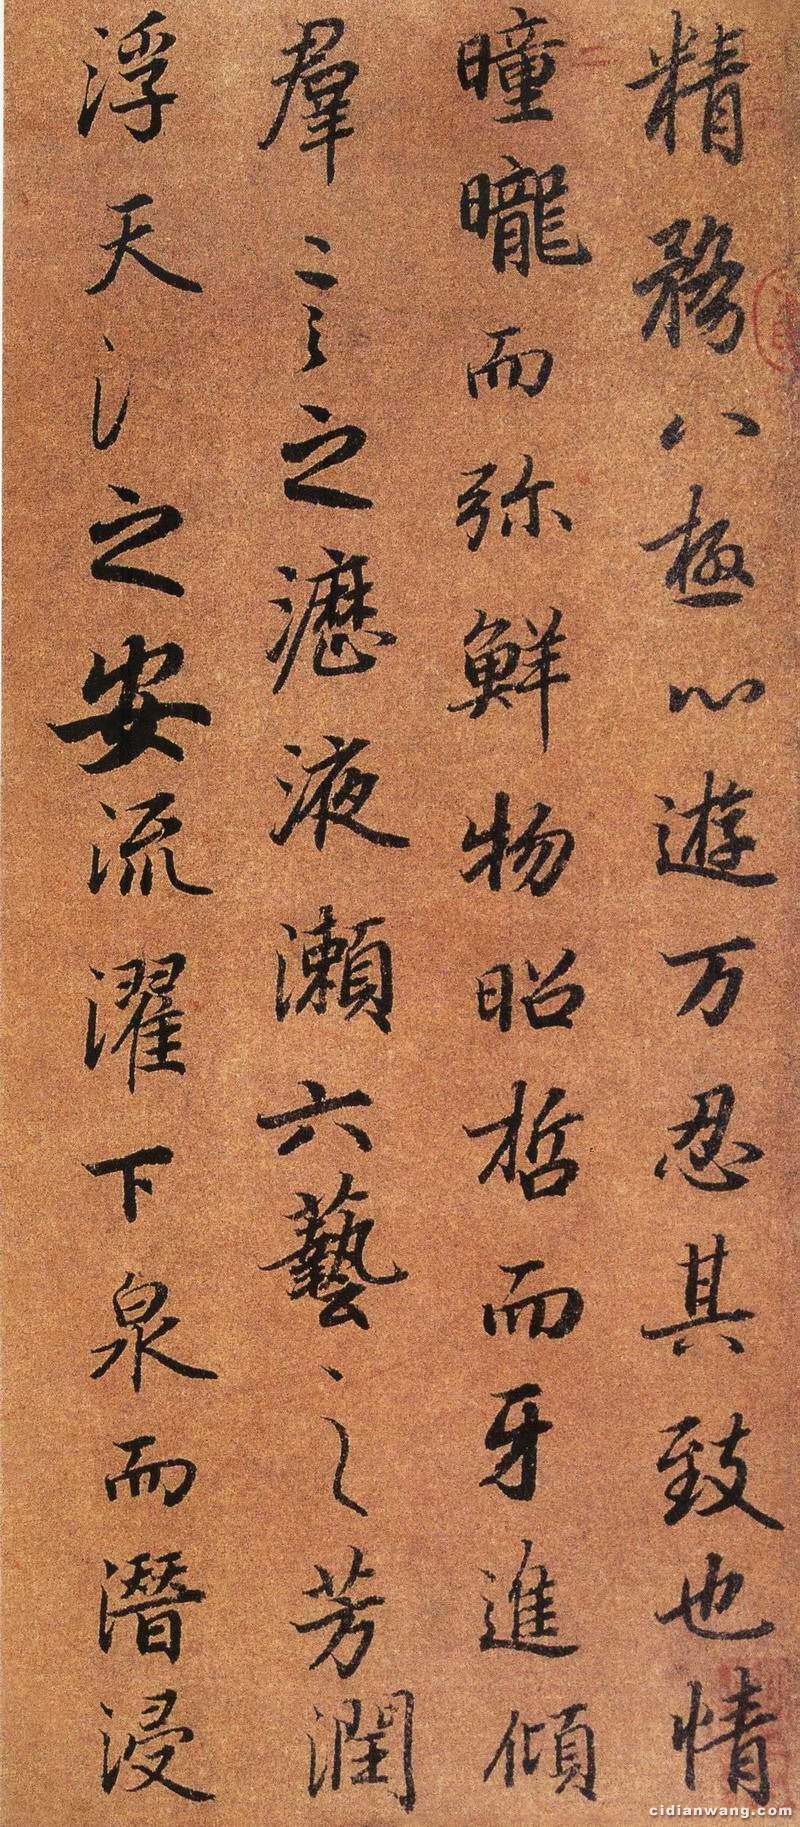 精務八極心遊万忍其致也情
曈曨而弥鮮物昭晢而牙進傾
羣言之瀝液瀨六藝之芳潤
浮天氵之安流濯下泉而潛浸
cidianwang.com